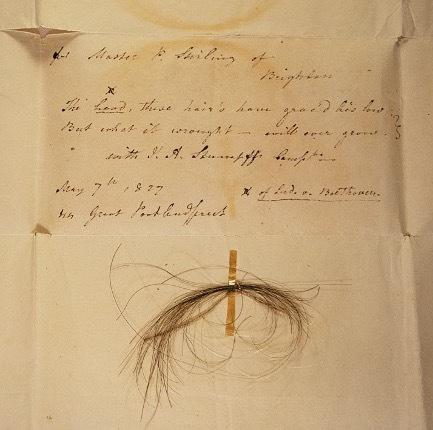 for Master P. Stirling of
Brighton
x
The head, these hair's have grac'd lies low
But what it wrought — will ever grow.
with J. A. Stumpff
May 7th 1827
x of Ludv. v. Beethoven.
44 Great Portland Street